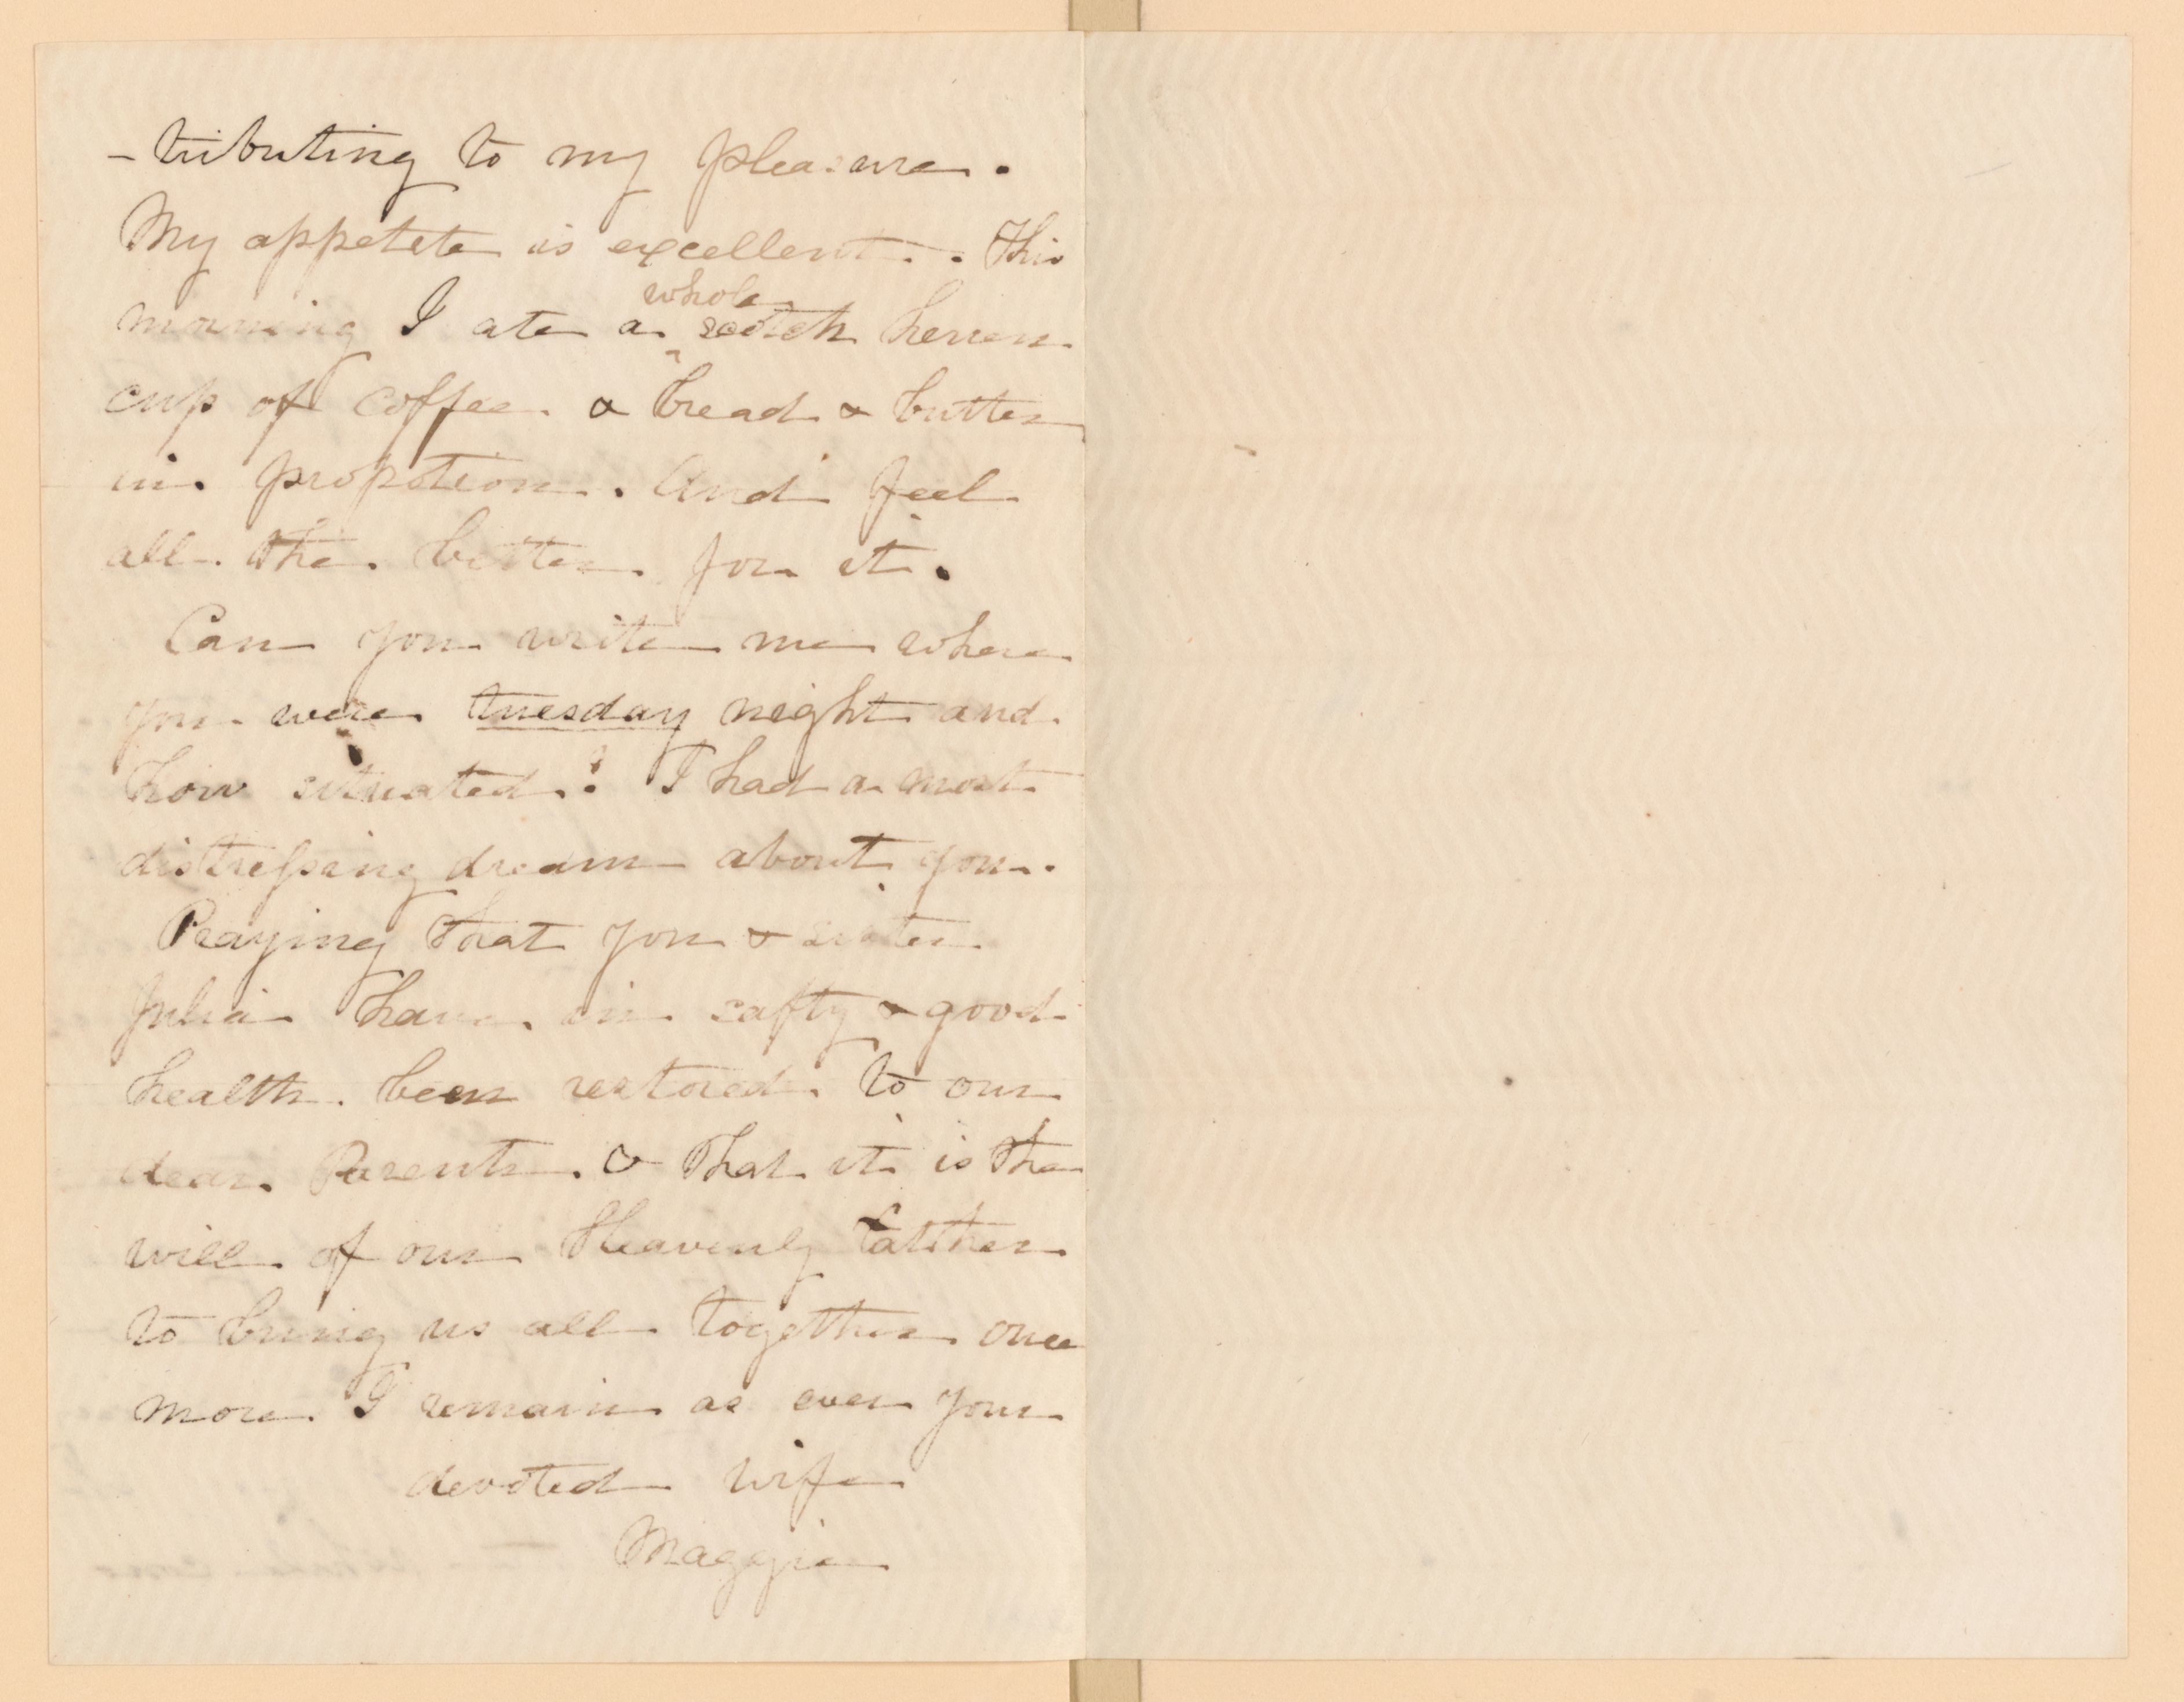 -tributing to my pleasure.
My appetete is excellent. . This
morning I ate a whole scotch herren
cup of coffee. & bread & butter
in. propotion. And feel
all. the. better for it.
Can you write me where
you were tuesday night and.
how situated.? I had a most
distressing dream about you.
Praying that you & sister
Julia have. in safty & good
health. been restored. to our
dear. Parents. & that it is the
will of our Heavenly Father
to bring us all together once
more. I remain as ever your
devoted wife
Maggie